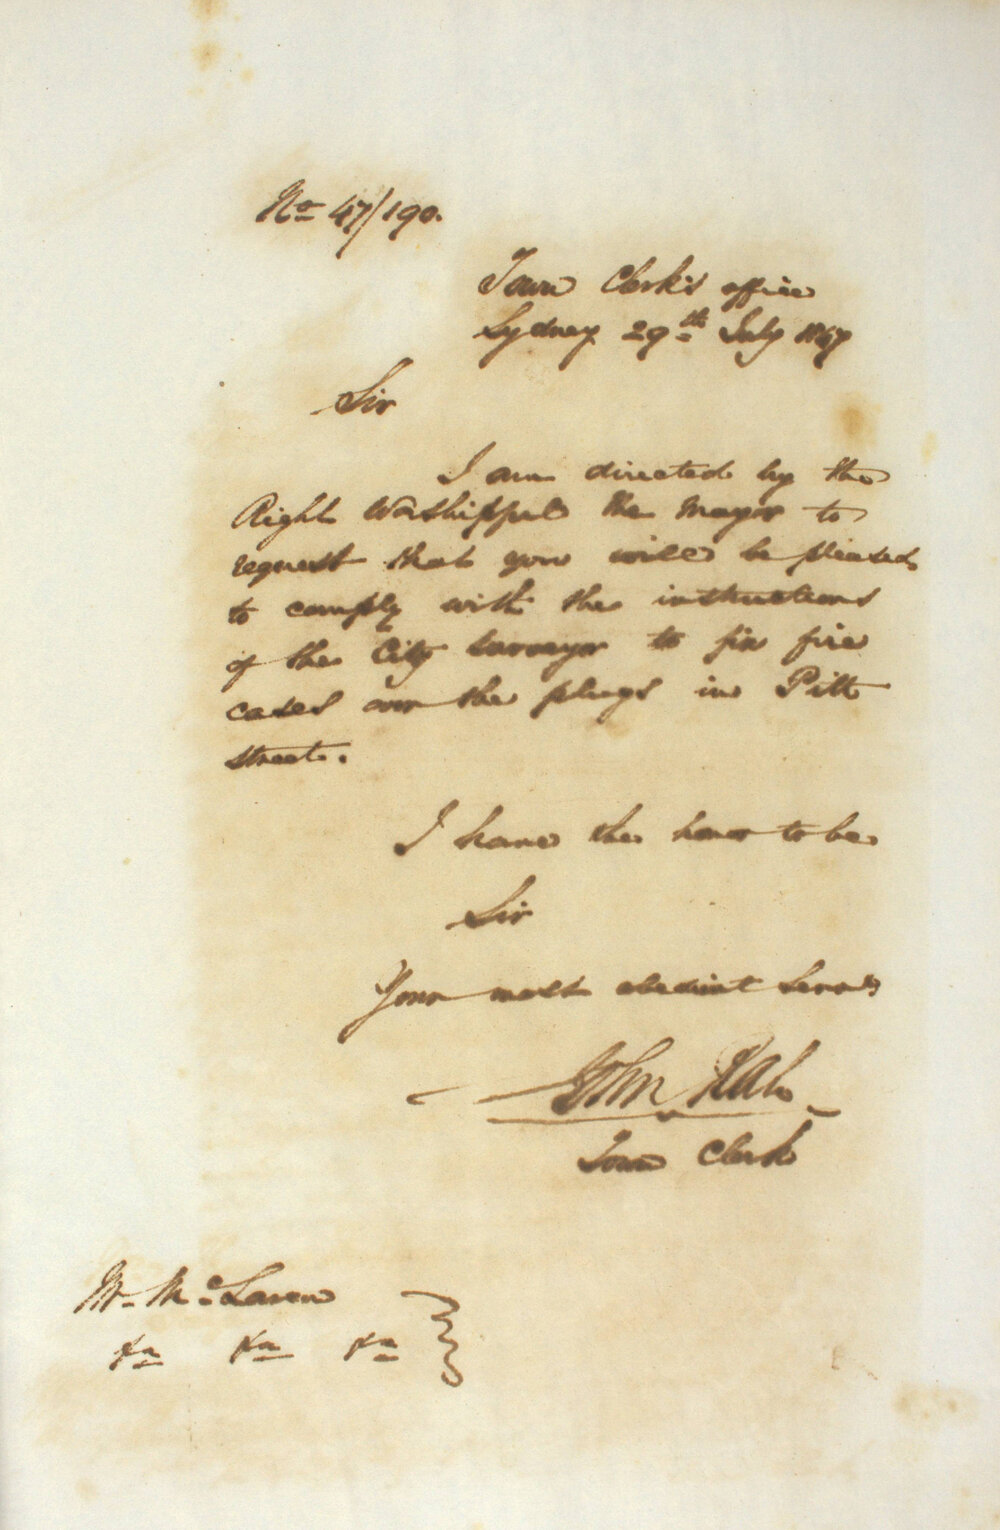 No 47/190.
Town Clerk's office
Sydney 29th July 1847
Sir
I am directed by the
Right Worshipful the Mayor to
request that you will be pleased
to comply with the instructions
of the City Surveyor to fix fire
cases over the plugs in Pitt
street.
I have the honor to be
Sir
Your most obedient Servt
John Rae
Town Clerk
Mr. McLaren
&c &c &c